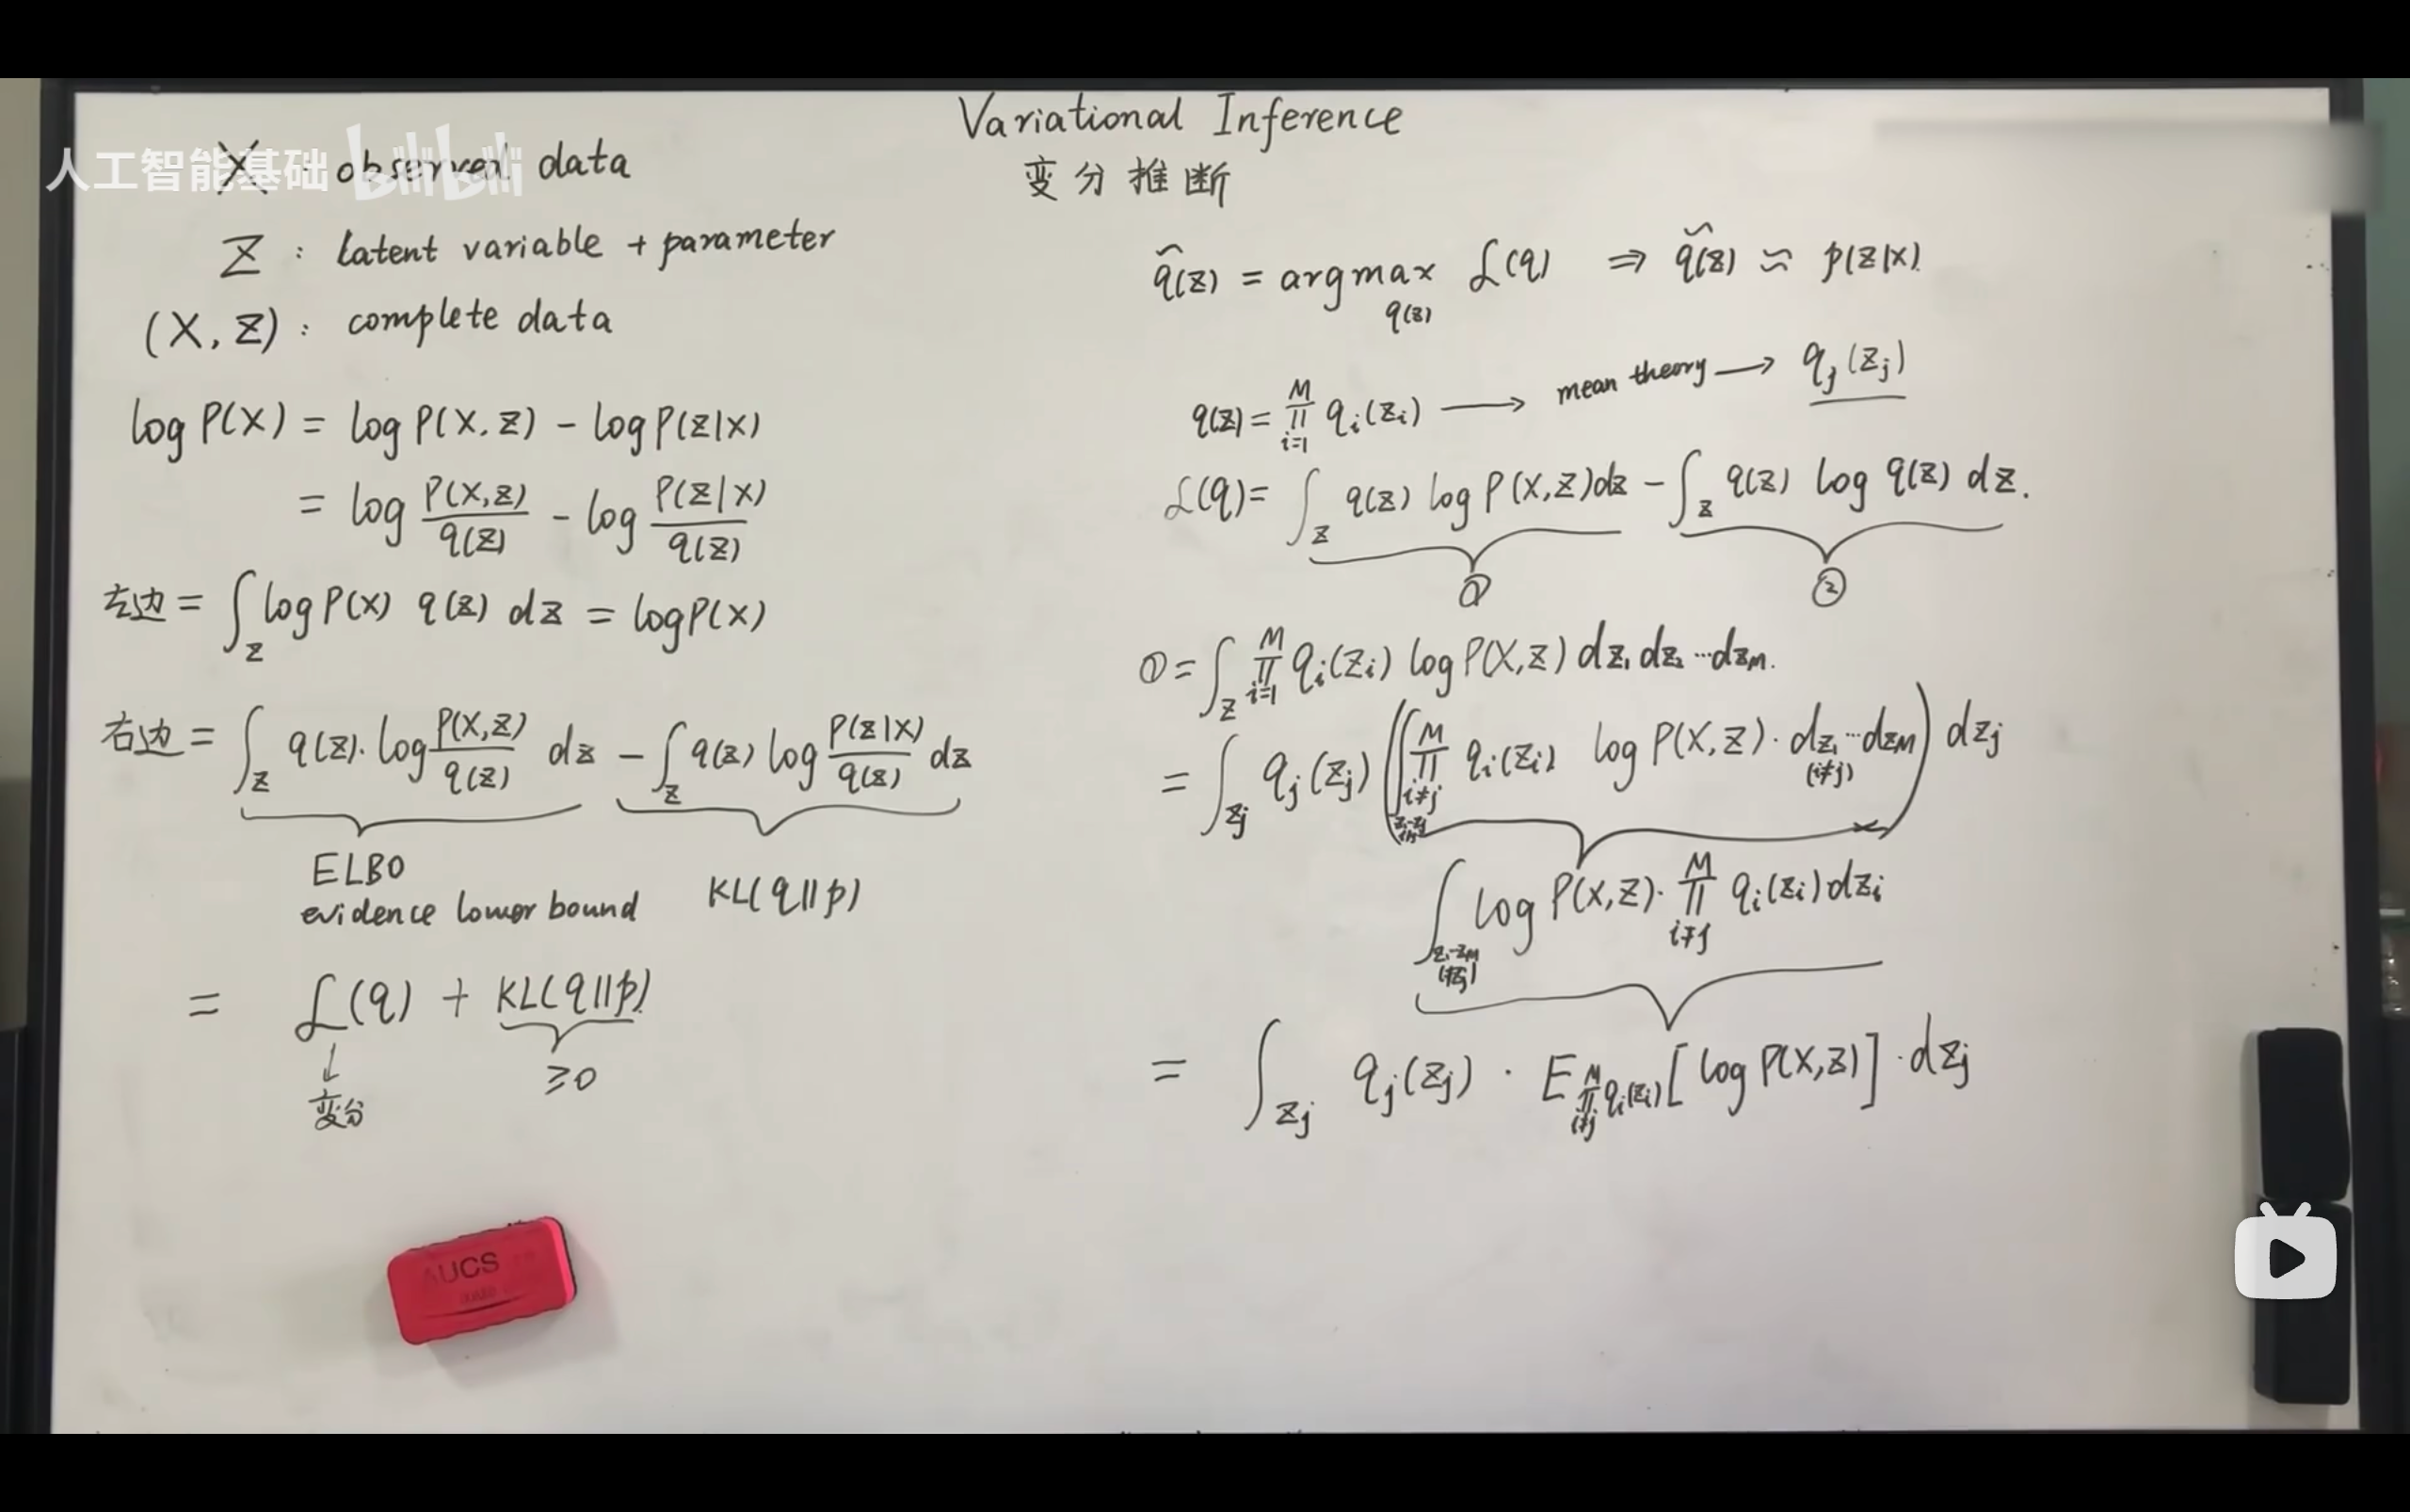 Variational Inference
变分推断
人工智能基础 bilibili
X observed data
Z : latent variable + parameter
(X, Z) : complete data
log P(X) = log P(X, Z) - log P(Z|X)
= log P(X,Z)/q(Z) - log P(Z|X)/q(Z)
左边 = ∫_Z log P(X) q(Z) dZ = log P(X)
右边 = ∫_Z q(Z)· log P(X,Z)/q(Z) dZ - ∫_Z q(Z) log P(Z|X)/q(Z) dZ
ELBO
evidence lower bound KL(q||p)
= ℒ(q) + KL(q||p)
↓ ≥0
变分
q̂(Z) = argmax_{q(Z)} ℒ(q) ⇒ q̂(Z) ≈ p(Z|X)
q(Z) = ∏_{i=1}^{M} q_i(Z_i) ⟶ mean theory ⟶ q_j(Z_j)
ℒ(q) = ∫_Z q(Z) log P(X,Z) dZ - ∫_Z q(Z) log q(Z) dZ.
① ②
① = ∫_Z ∏_{i=1}^{M} q_i(Z_i) log P(X,Z) dZ_1 dZ_2 ... dZ_M.
= ∫_{Z_j} q_j(Z_j) (∫ ∏_{i≠j}^{M} q_i(Z_i) log P(X,Z)· dZ_1...dZ_M (i≠j)) dZ_j
∫_{Z_1-Z_M (≠Z_j)} log P(X,Z)· ∏_{i≠j}^{M} q_i(Z_i) dZ_i
= ∫_{Z_j} q_j(Z_j) · E_{∏_{i≠j}^{M} q_i(Z_i)} [log P(X,Z)] · dZ_j
AUCS